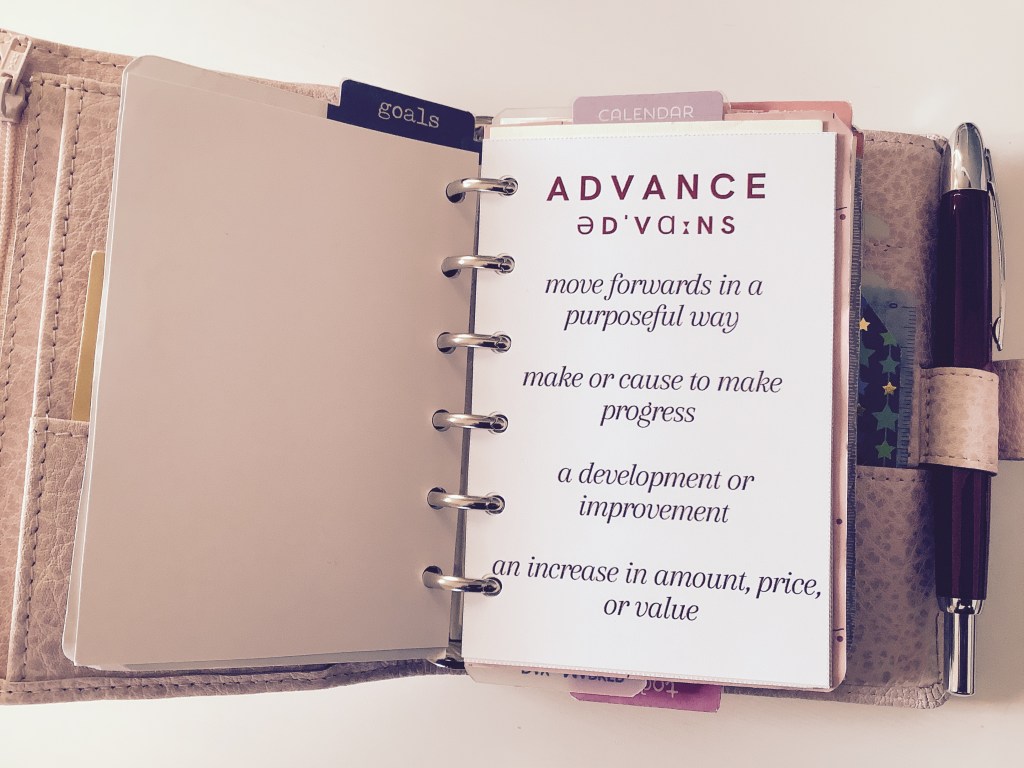 goals
CALENDAR
ADVANCE
ƏD'VⱭːNS
move forwards in a
purposeful way
make or cause to make
progress
a development or
improvement
an increase in amount, price,
or value